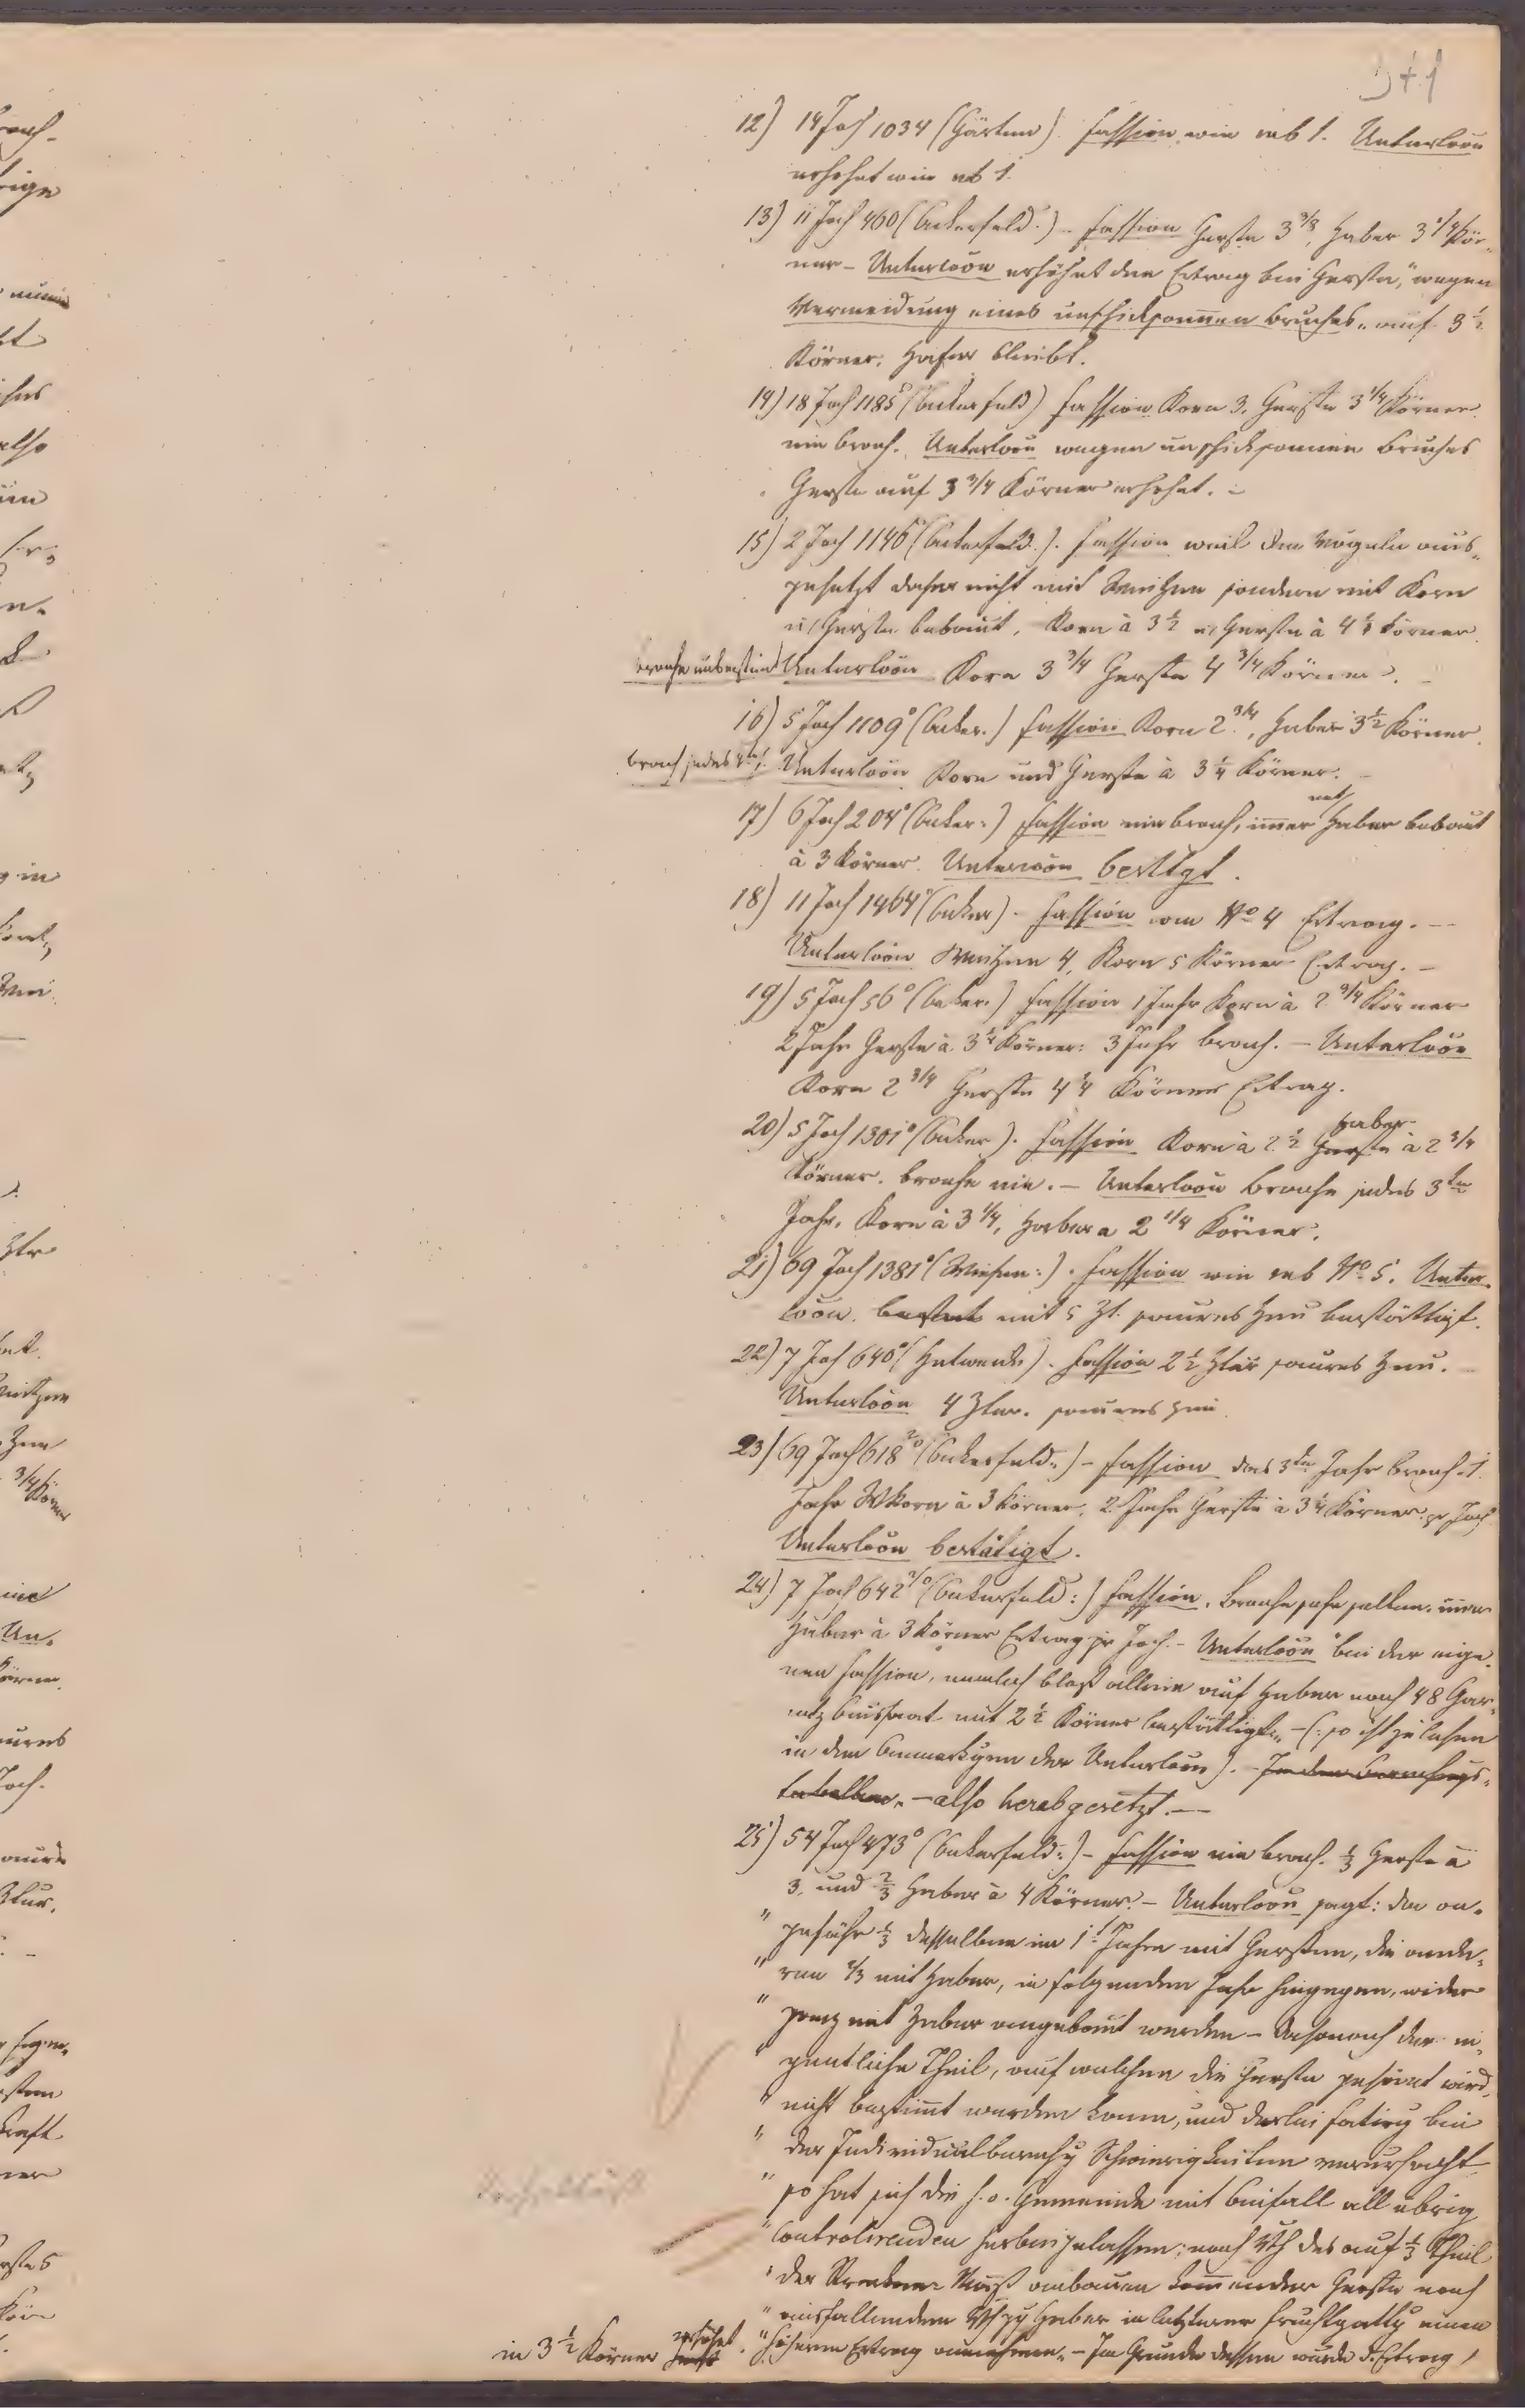 12) 14 Joch 1034 (Gärten). Fassion wie sub 1. Unterloou
erhohet wie sub 1.
13) 11 Joch 460 (Ackerfeld.) – Fassion Gerste 3 3/8, Haber 3 1/4 Kör-
ner – Unterloou erhöhet den Ertrag bei Gerste, "wegen
Vermeidung eines unschicksamen Bruches" auf 3 1/2
Körner. Hafer bleibt.
14) 18 Joch 1185° (Ackerfeld) Fassion Korn 3. Gerste 3 1/4 Körner
nie brach. Unterloou wegen unschicksamen Bruches
Gerste auf 3 3/4 Körner erhohet. –
15) 2 Joch 1146° (Ackerfeld.). Fassion weil den Vögeln aus-
gesetzt daher nicht mit Weitzen sondern mit Korn
u/ Gerste bebaut, Korn à 3 1/2 u/ Gerste à 4 1/4 Körner
Unterloou Korn 3 3/4 Gerste 4 3/4 Körner. –
16) 5 Joch 1109° (Acker.) Fassion Korn 2 3/4, Haber 3 1/2 Körner.
brach jedes 4te J. Unterloou Korn und Gerste à 3 1/4 Körner. –
17) 6 Joch 204° (Acker:) Fassion nie brach, immer mit Haber bebaut
à 3 Körner. Unterloou bestätigt.
18) 11 Joch 1464° (Acker). Fassion vom No 4 Ertrag. –
Unterloou Weitzen 4, Korn 5 Körner Ertrag. –
19) 5 Joch 56° (Acker.) Fassion 1 Jahr Korn à 2 3/4 Körner
2 Jahr Gerste à 3 1/4 Körner: 3 Jahr brach. – Unterloou
Korn 2 3/4 Gerste 4 1/4 Körner Ertrag.
20) 5 Joch 1301° (Acker). Fassion Korn à 2 1/2 Gerste Haber à 2 3/4
Körner. brache nie. – Unterloou Brache jedes 3te
Jahr, Korn à 3 1/4, Haber a 2 1/4 Körner.
21) 69 Joch 1381° (Wiesen:). Fassion wie sub No 5. Unter-
loou mit 5 Zt. saures Heu bestättigt.
22) 7 Joch 640° (Hutweide). Fassion 2 1/2 Ztner saures Heu. –
Unterloou 4 Ztner. saures Heu
23) 69 Joch 618 (Ackerfeld:) – Fassion das 3te Jahr brach. 1.
Jahr WKorn à 3 Körner, 2. Jahr Gerste à 3 1/4 Körner pr Joch
Unterloou bestätigt.
24) 7 Joch 642 (Ackerfeld:) Fassion. Brache sehr selten. immer
Haber à 3 Körner Ertrag pr Joch. – Unterloou "bei der eige-
nen Fassion, nemlich bloß allein auf Haber nach 48 Gar-
netz Aussaat mit 2 1/2 Körner bestättigt" – (: so ist zu lesen
in den Anmerkgen der Unterloou). – In den Berechngs-
tabellen, – also herabgesetzt. –
25) 54 Joch 473° (Ackerfeld:) – Fassion nie brach. 1/3 Gerste à
3, und 2/3 Haber à 4 Körner. – Unterloou sagt: da on-
" gefähr 1/3 desselben im 1t Jahre mit Gersten, die ande-
" ren 2/3 mit Haber, in folgenden Jahr hingegen, wider
" ganz mit Haber angebaut werden – dahonach der ei-
" gentliche Theil, auf welchen die Gerste gesäet wird,
" nicht bestimt werden kann, und derlei Fatirg bei
" der Individualberechg Schwierigkeiten verursacht
" so hat sich die h. o. Gemeinde mit Beifall all übrig
" Controlirenden herbeigelassen; nach Vth des auf 1/3 Theil
" der anbauen kommender Gerste nach
" ausfallendem Haber in letzterer Fruchtgattg einen
" höheren Ertrag annehmen, – Im Grunde dessen wurde d. Ertrag /
in 3 1/2 Körner erhöhet.